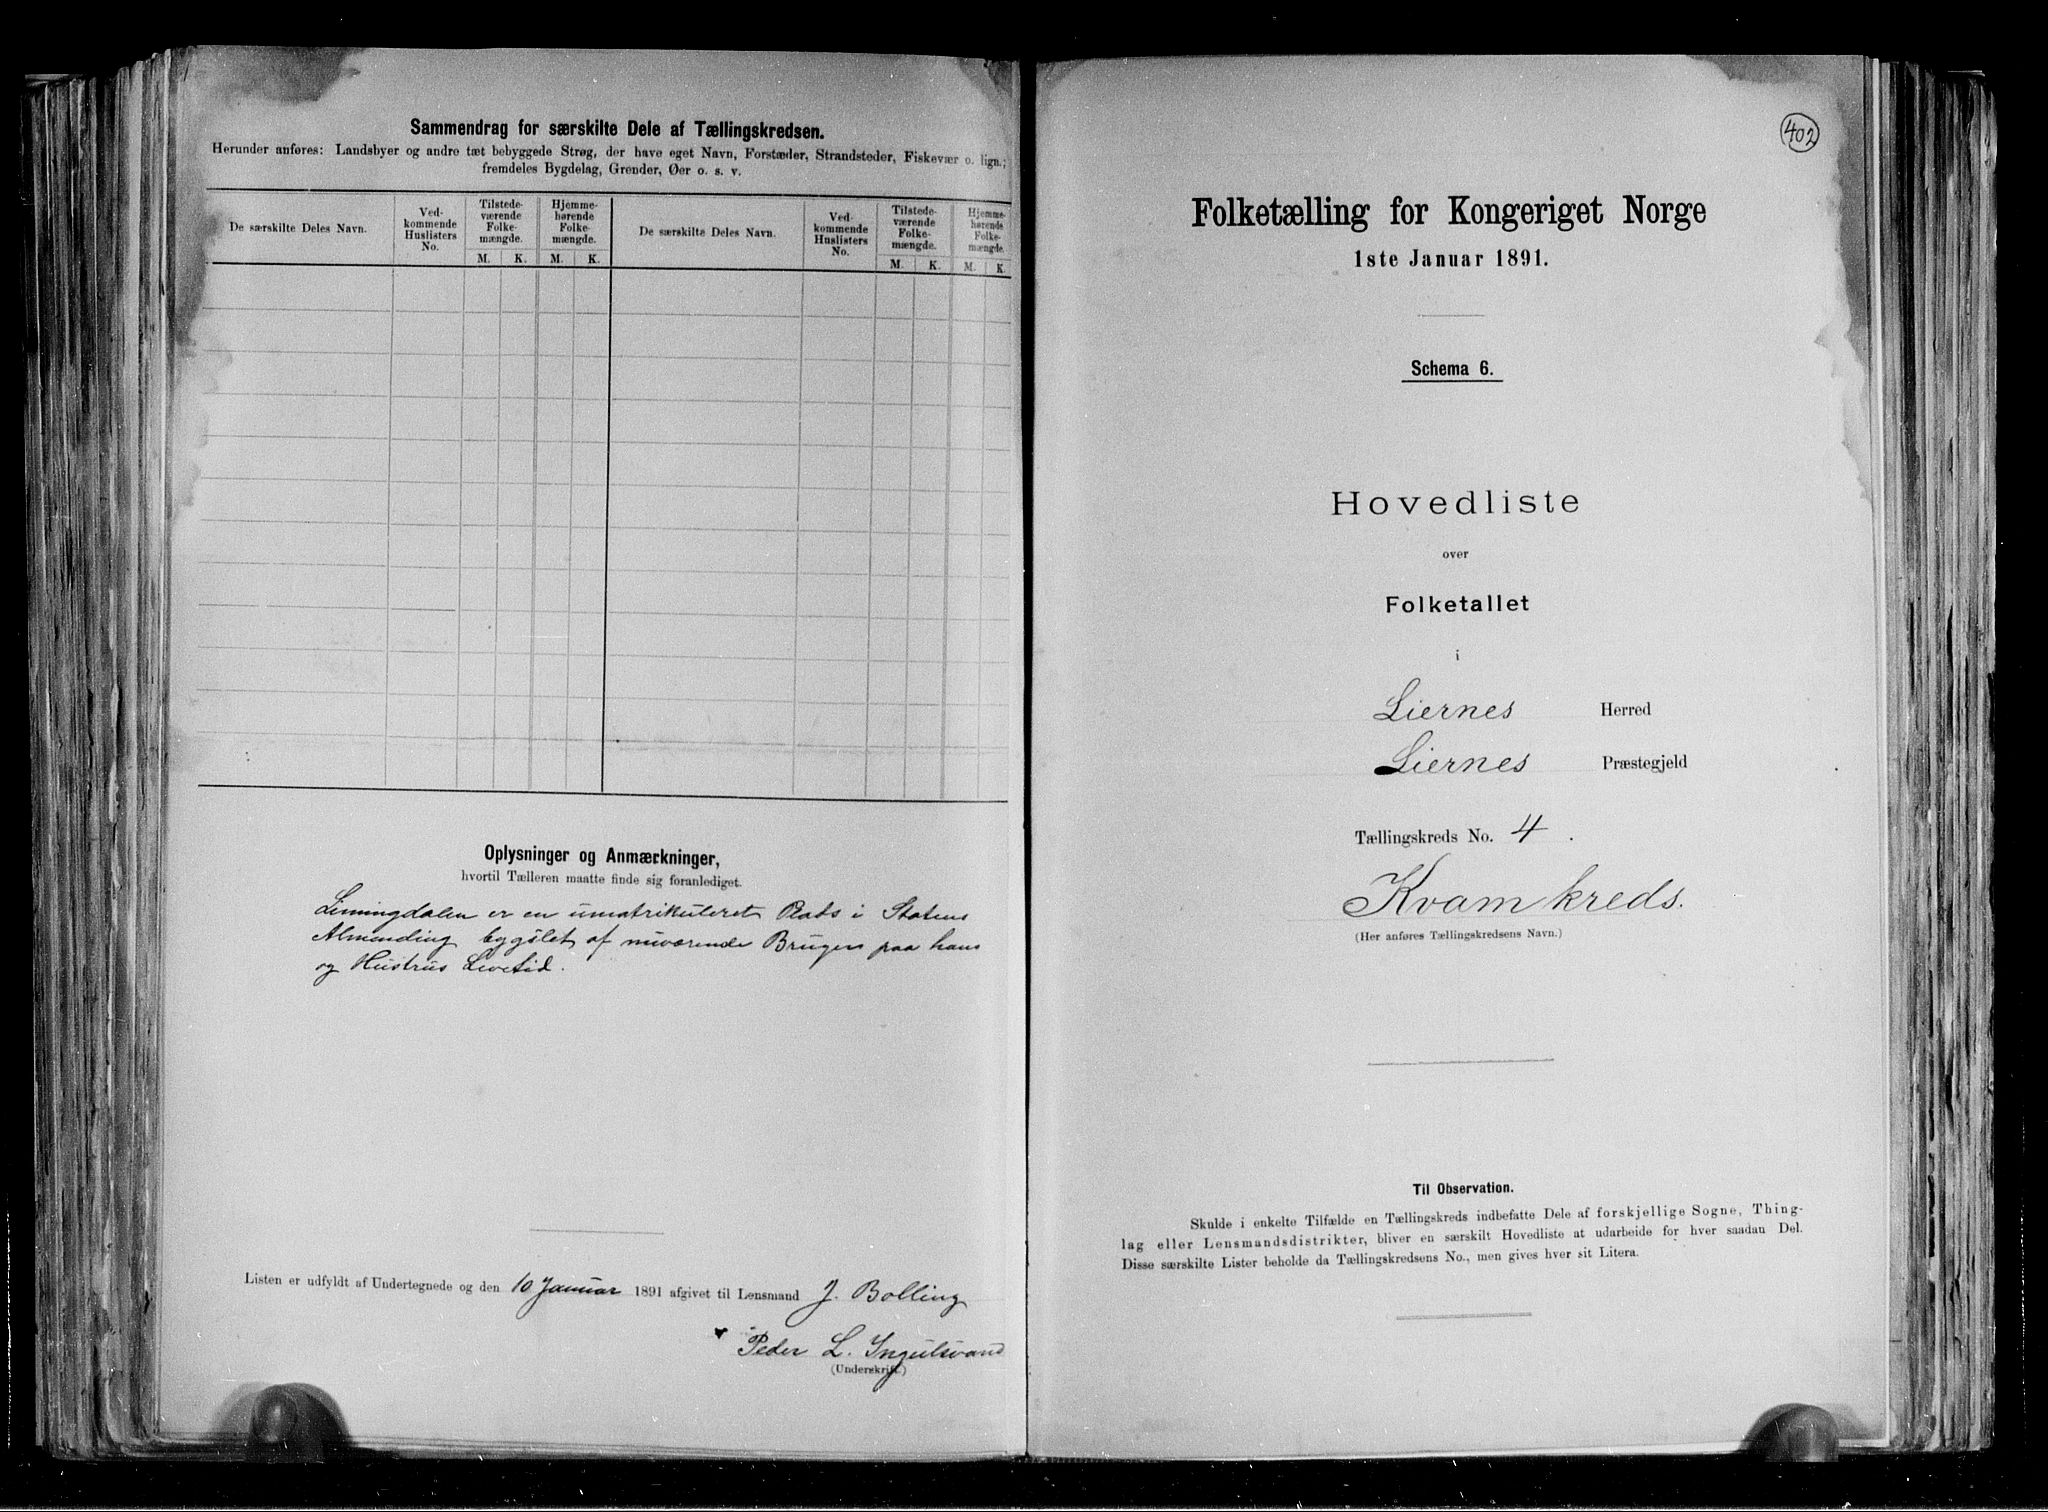 Sammendrag for særskilte Dele af Tællingskredsen.
Herunder anføres: Landsbyer og andre tæt bebyggede Strøg, der have eget Navn, Forstæder, Strandsteder, Fiskevær o. lign.;
fremdeles Bygdelag, Grender, Øer o. s. v.
De særskilte Deles Navn.
Ved-
kommende
Huslisters
No.
Tilstede-
værende
Folke-
mængde.
Hjemme-
hørende
Folke-
mængde.
De særskilte Deles Navn.
Ved-
kommende
Huslisters
No.
Tilstede-
værende
Folke-
mængde.
Hjemme-
hørende
Folke-
mængde.
M. K. M. K. M. K. M. K.
Oplysninger og Anmærkninger,
hvortil Tælleren maatte finde sig foranlediget.
Limingdalen er en umatrikuleret Plads i Statens
Almending bygslet af nuværende Bruger paa hans
og Hustrus Levetid.
Listen er udfyldt af Undertegnede og den 10 Januar 1891 afgivet til Lensmand J. Bolling
Peder L. Ingulsvand
(Underskrift.)
402
Folketælling for Kongeriget Norge
1ste Januar 1891.
Schema 6.
Hovedliste
over
Folketallet
i
Liernes Herred
Liernes Præstegjeld
Tællingskreds No. 4.
Kvam kreds.
(Her anføres Tællingskredsens Navn.)
Til Observation.
Skulde i enkelte Tilfælde en Tællingskreds indbefatte Dele af forskjellige Sogne, Thing-
lag eller Lensmandsdistrikter, bliver en særskilt Hovedliste at udarbeide for hver saadan Del.
Disse særskilte Lister beholde da Tællingskredsens No., men gives hver sit Litera.